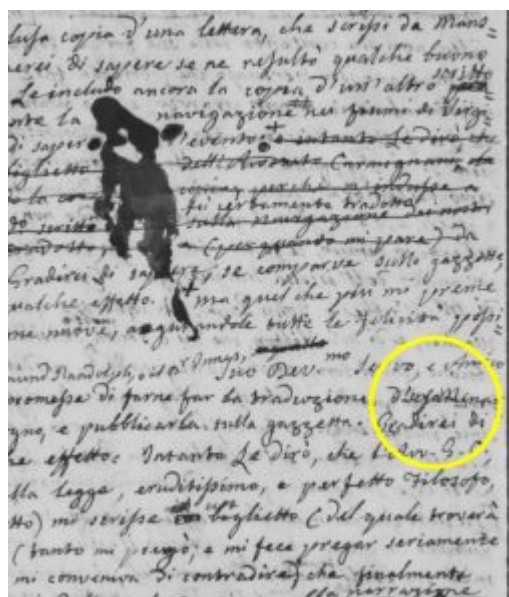 lusa copia d'una lettera, che scrissi da Mans=
erei di sapere se ne resultò qualche buono
Le includo ancora la copia d'un'altro scritto
nte la navigazione nei fiumi di Virgi=
di sapere l'evento: e intanto Le dirò, che
biglietto dell'Avvocato Carmignani, da
o la co copia, perchè m'indusse a
do scritto fù certamente tradotta
sulla navigazione dei nostri
tradotto, e (per quando mi pare) da
Gradirei di sapere, se comparve sulle gazzette,
qualche effetto. ma quel che più mi preme
me nuove, augurandole tutte le felicità possi=
Suo Dev.mo Servo, e Amico
mund Randolph, o il
promesse di farne far la traduzione,
gno, e pubblicarla sulla gazzetta. Gradirei di
he effetto: Intanto Le dirò, che
lla legge, eruditissimo, e perfetto Filosofo,
tto) mi scrisse biglietto (del quale troverà
(tanto mi pregò, e mi fece pregar seriamente
mi conveniva di contradire) che finalmente
lla narrazione